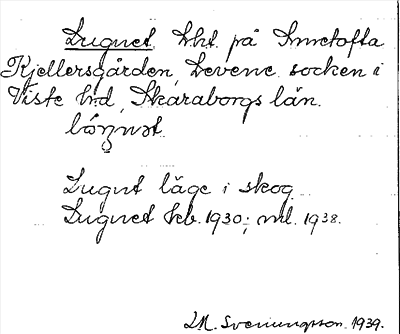 Lugnet, Lht. på Smetofta
Kjellersgården, Levene socken i
Viste hd, Skaraborgs län.
Lugnt läge i skog.
Lugnet kb. 1930; ml. 1938.
1939.